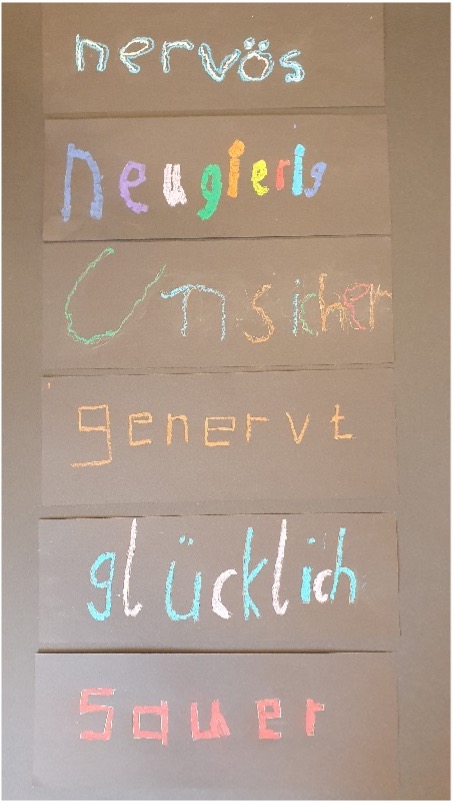 nervös
neugierig
Unsicher
genervt
glücklich
sauer